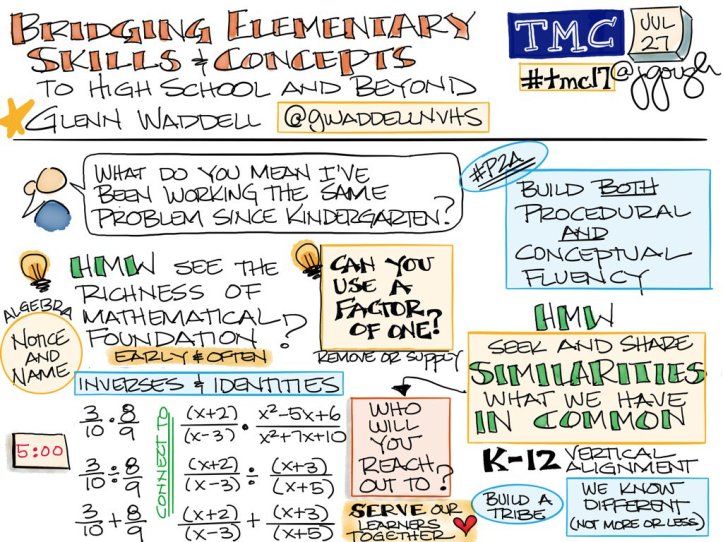 BRIDGING ELEMENTARY
SKILLS & CONCEPTS
TO HIGH SCHOOL AND BEYOND
GLENN WADDELL @gwaddellnvhs
TMC
JUL
27
#tmc17
@jgough
WHAT DO YOU MEAN I'VE
BEEN WORKING THE SAME
PROBLEM SINCE KINDERGARTEN?
#P2A
BUILD BOTH
PROCEDURAL
AND
CONCEPTUAL
FLUENCY
HMW SEE THE
RICHNESS OF
MATHEMATICAL
FOUNDATION?
EARLY & OFTEN
ALGEBRA
NOTICE
AND
NAME
CAN YOU
USE A
FACTOR
OF ONE?!
REMOVE OR SUPPLY
HMW
SEEK AND SHARE
SIMILARITIES
WHAT WE HAVE
IN COMMON
INVERSES & IDENTITIES
5:00
3/10 · 8/9
3/10 ÷ 8/9
3/10 + 8/9
CONNECT TO
(x+2)/(x-3) · x²-5x+6/x²+7x+10
(x+2)/(x-3) ÷ (x+3)/(x+5)
(x+2)/(x-3) + (x+3)/(x+5)
WHO
WILL
YOU
REACH
OUT TO?
SERVE OUR
LEARNERS
TOGETHER
K-12 VERTICAL
ALIGNMENT
BUILD A
TRIBE
WE KNOW
DIFFERENT
(NOT MORE OR LESS)